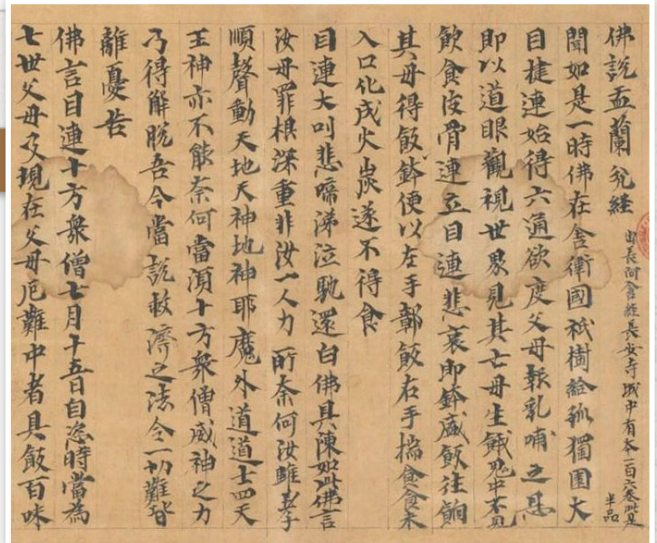 佛說盂蘭瓫經 出長阿含經長安寺城中有本一百六卷此是半品
聞如是一時佛在舍衛國祇樹給孤獨園大
目揵連始得六通欲度父母報乳哺之恩
即以道眼觀視世界見其亡母生餓鬼中不見
飲食皮骨連立目連悲哀即鉢盛飯往餉
其母得飯鉢便以左手鄣飯右手摶食食未
入口化成火炭遂不得食
目連大叫悲啼涕泣馳還白佛具陳如此佛言
汝母罪根深重非汝一人力所奈何汝雖孝
順聲動天地天神地神耶魔外道道士四天
王神亦不能奈何當須十方衆僧威神之力
乃得解脫吾今當說救濟之法令一切難皆
離憂苦
佛言目連十方衆僧七月十五日自恣時當為
七世父母及現在父母厄難中者具飯百味